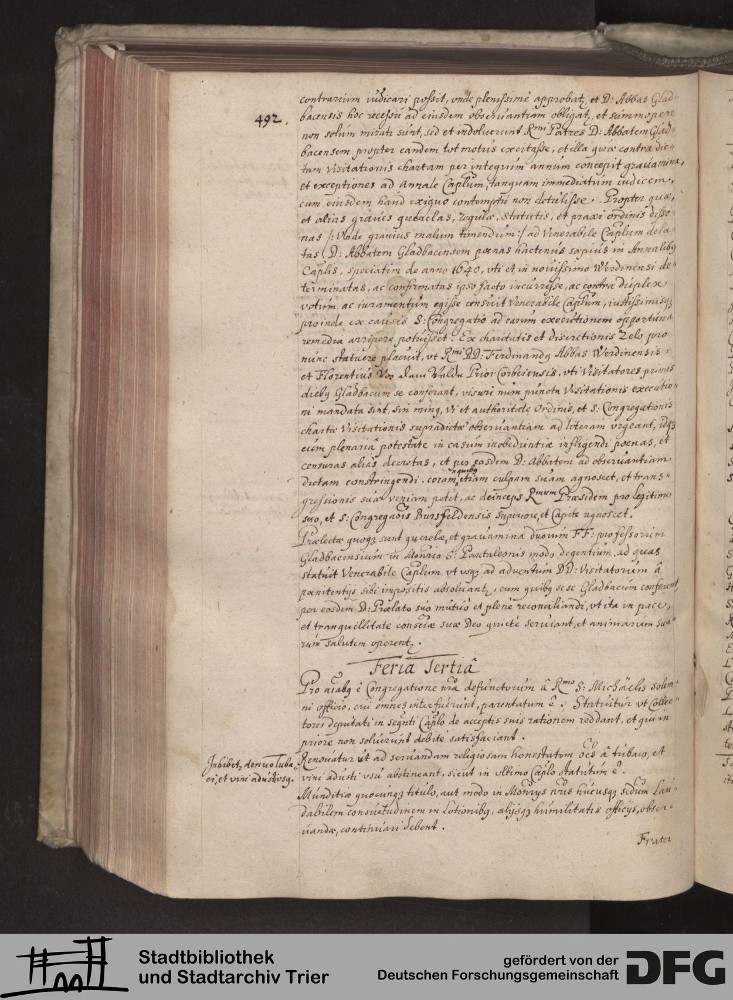 492.
contrarium iudicari possit, unde plenissimè approbat, et D: Abbas Glad-
bacensis hoc recessu ad eiusdem observantiam obligat, et summopere
non solum mirati sunt, sed et indoluerunt Rmi Patres D: Abbatem Glad-
bacensem propter eandem tot motus excitasse, et illa quæ contra dic-
tam Visitationis chartam per integrum annum concepit gravamina,
et exceptiones ad Annale Caplum, tanquam immediatum iudicem,
cum eiusdem haud exiguo contemptu non detulisse. Propter quæ,
et alias graves querelas, regulæ, statutis, et praxi ordinis disso-
nas /: Unde gravius malum timendum :/ ad Venerabile Caplum dela-
tas D: Abbatem Gladbacensem pœnas hactenus sæpius in Annalibq
Caplis, speciatim de anno 1640, uti et in novissimo Werdinensi de-
terminatas, ac confirmatas ipso facto incurrisse, ac contra duplex
votum, ac iuramentum egisse censuit Venerabile Caplum, iustissimisq
proinde ex causis S: Congregatio ad earum executionem opportuna
remedia arripere potuisset. Ex charitatis et discretionis Zelo pro
nunc statuere placuit, ut Rmi DD: Ferdinandq Abbas Werdinensis
et Florentius Prior Corbeiensis, uti Visitatores primis
diebq Gladbacum se conferant, visuri num puncta Visitationis executio-
ni mandata sint, sin minq, Vi et authoritate Ordinis, et S: Congregationis
chartæ Visitationis supradictæ observantiam ad literam urgeant, idq
cum plenaria potestate in casum inobedientiæ infligendi pœnas, et
censuras alias decretas, et per eosdem D: Abbatem ad observantiam
dictam constringendi: coram quibq etiam culpam suam agnoscet, et trans-
gressionis suæ veniam petet, ac deinceps Rmum Præsidem pro legitimo
suo, et S: Congregaõis Bursfeldensis Superiore, et Capite agnoscet.
Prælectæ quoq sunt querelæ, et gravamina duorum FF: professorum
Gladbacensium in Monrio S: Pantaleonis modo degentium, ad quas
statuit Venerabile Caplum ut usq ad adventum DD: Visitatorum â
pœnitentijs sibi impositis absolvant, cum quibq sese Gladbacum conferent
per eosdem D: Prælato suo mutuò et plenè reconciliandi, ut ita in pace,
et tranquillitate consciæ suæ Deo quietè serviant, et animarum sua-
rum salutem operent.
Feria Tertiâ
Pro aîabq è Congregatione nrâ defunctorum â Rmo S: Michaëlis solem-
ni officio, cui omnes interfuerunt, parentatum ê. Statuitur ut Collec-
tores deputati in seqnti Caplo de acceptis suis rationem reddant, et qui in
priore non solverunt debitè satisfaciant.
Inhibet, denuo Tuba-
ci, et vini adusti usq.
Renovatur ut ad servandam religiosam honestatem oēs â tubaco, et
vini adusti usu abstineant, sicut in ultimo Caplo statutum ê.
Munditiæ quocunq titulo, aut modo in Monrys nris hucusq scdum lau-
dabilem consuetudinem in Lotionibq, alijsq humilitatis officijs, obser-
vandæ, continuari debent.
Frater
Stadtbibliothek
und Stadtarchiv Trier
gefördert von der
Deutschen Forschungsgemeinschaft
DFG